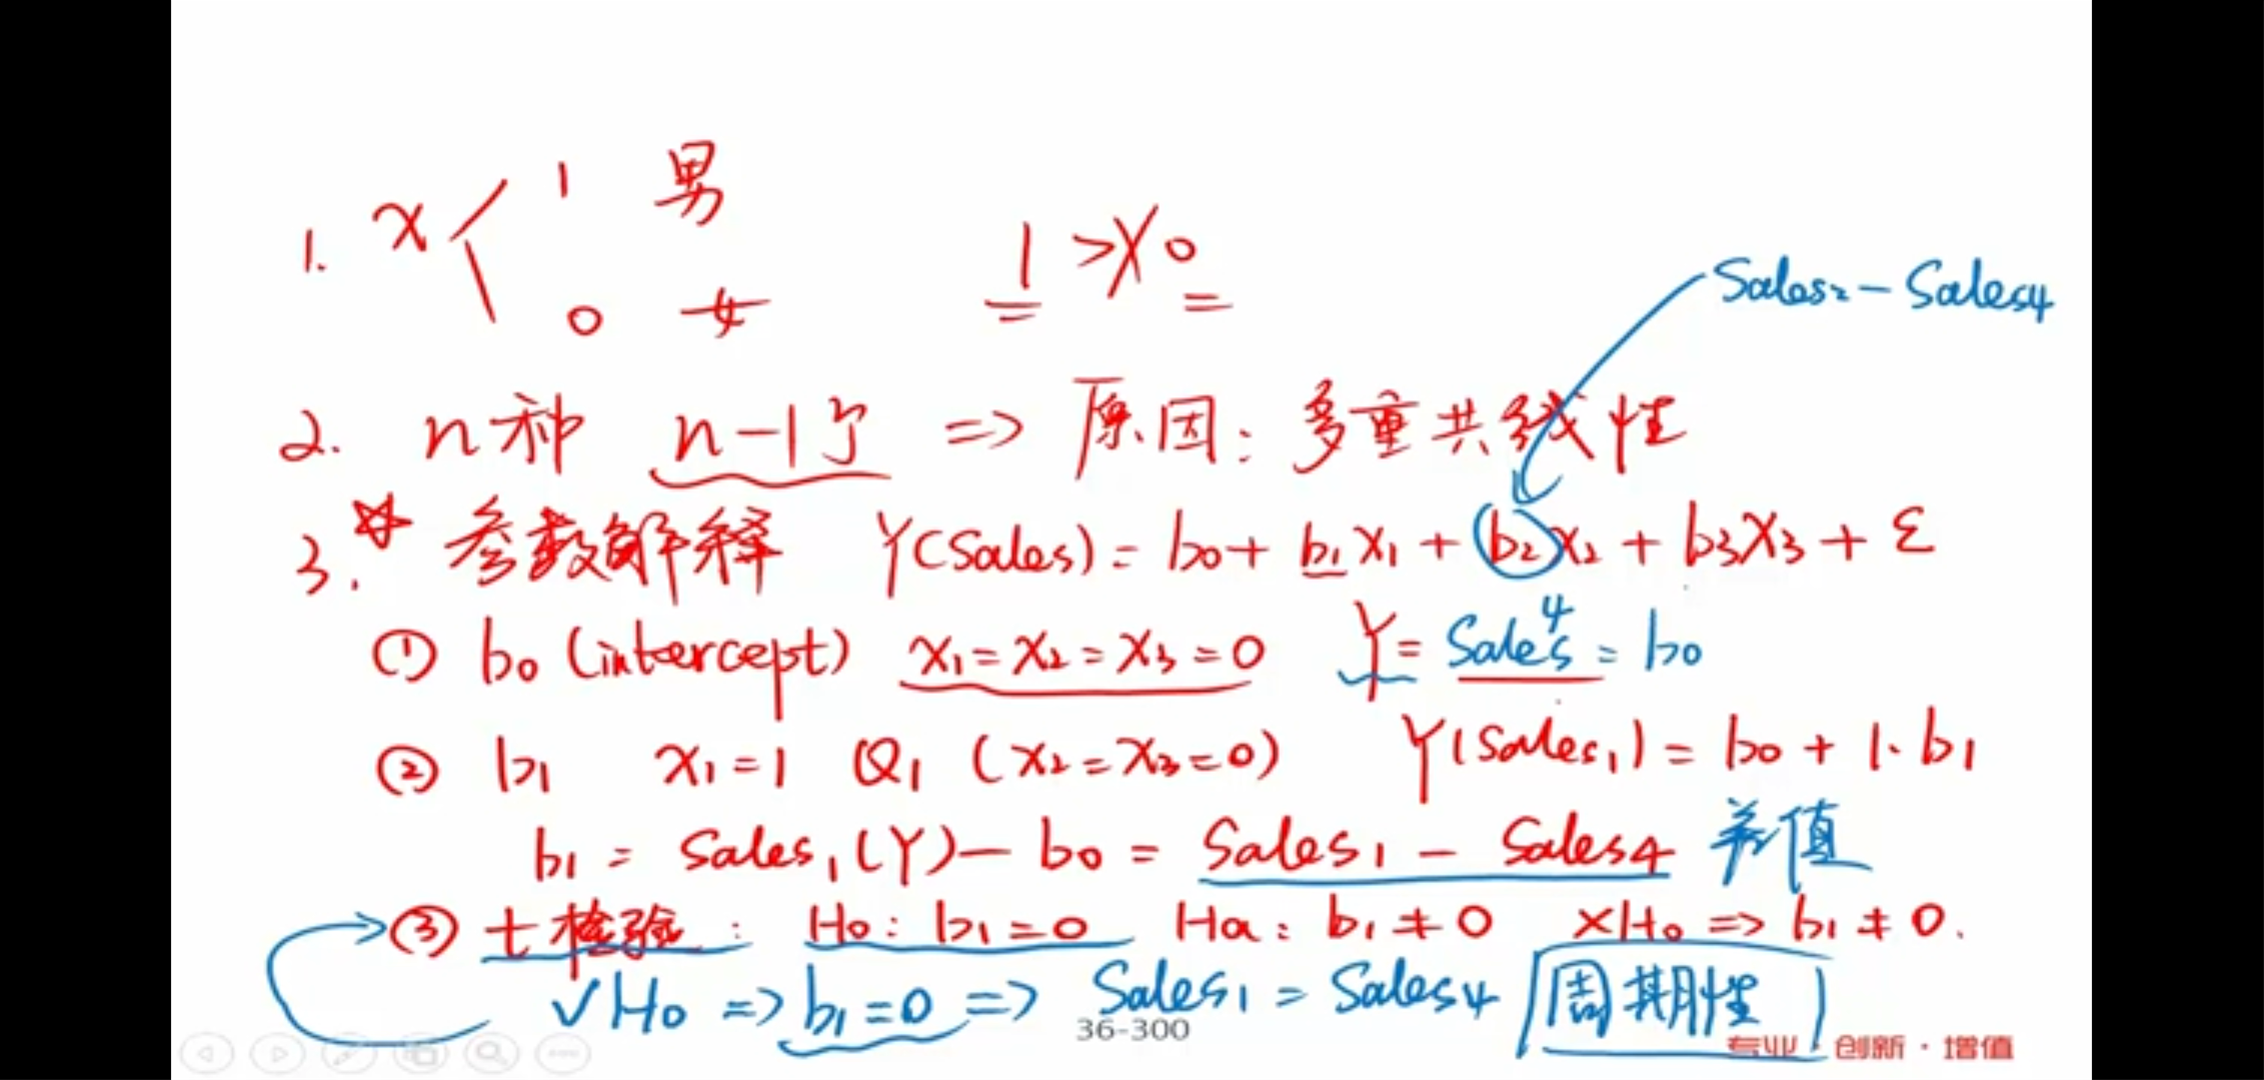 1. x 1 男
0 女
1 > 0
Sales₂ - Sales4
2. n种 n-1个 => 原因: 多重共线性
3. ☆ 参数解释 Y(Sales) = b₀ + b₁x₁ + b₂x₂ + b₃x₃ + ε
① b₀ (intercept) x₁ = x₂ = x₃ = 0 Y = Sales4 = b₀
② b₁ x₁ = 1 Q₁ (x₂ = x₃ = 0) Y(Sales₁) = b₀ + 1·b₁
b₁ = Sales₁(Y) - b₀ = Sales₁ - Sales4 差值
③ t检验: H₀: b₁ = 0 Ha: b₁ ≠ 0 ×H₀ => b₁ ≠ 0.
√H₀ => b₁ = 0 => Sales₁ = Sales4 周期性
36-300
专业·创新·增值